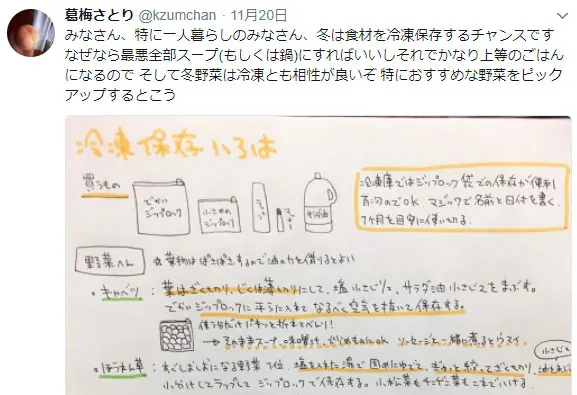 葛梅さとり @kzumchan・11月20日
みなさん、特に一人暮らしのみなさん、冬は食材を冷凍保存するチャンスです
なぜなら最悪全部スープ(もしくは鍋)にすればいいしそれでかなり上等のごはん
になるので そして冬野菜は冷凍とも相性が良いぞ 特におすすめな野菜をピック
アップするとこう
冷凍保存いろは
買うもの
でかいジップロック
小さめのジップロック
ラップ
サラダ油
冷凍庫ではジップロック袋での保存が便利
百均のでOK。マジックで名前と日付を書く。
1ヶ月を目安に使い切る。
野菜へん
☆葉物はぱさぱさするので油の力を借りるとよい
・キャベツ : 葉はざくぎり、じくは薄切りにして、塩小さじ1/2、サラダ油小さじ2をまぶす。
でかいジップロックに平らに入れてなるべく空気を抜いて保存する。
使う分だけパキッと折れてべんり!
→そのままスープ、味噌汁、
ソーセージと一緒に煮るとうまい
・ほうれん草 : すぐしおしおになる野菜1位。塩を入れた湯で固めにゆでて、ぎゅっと絞ってざくぎり、
小さじ1
小分けしてラップしてジップロックで保存する。小松菜もチンゲン菜もこれでいける。